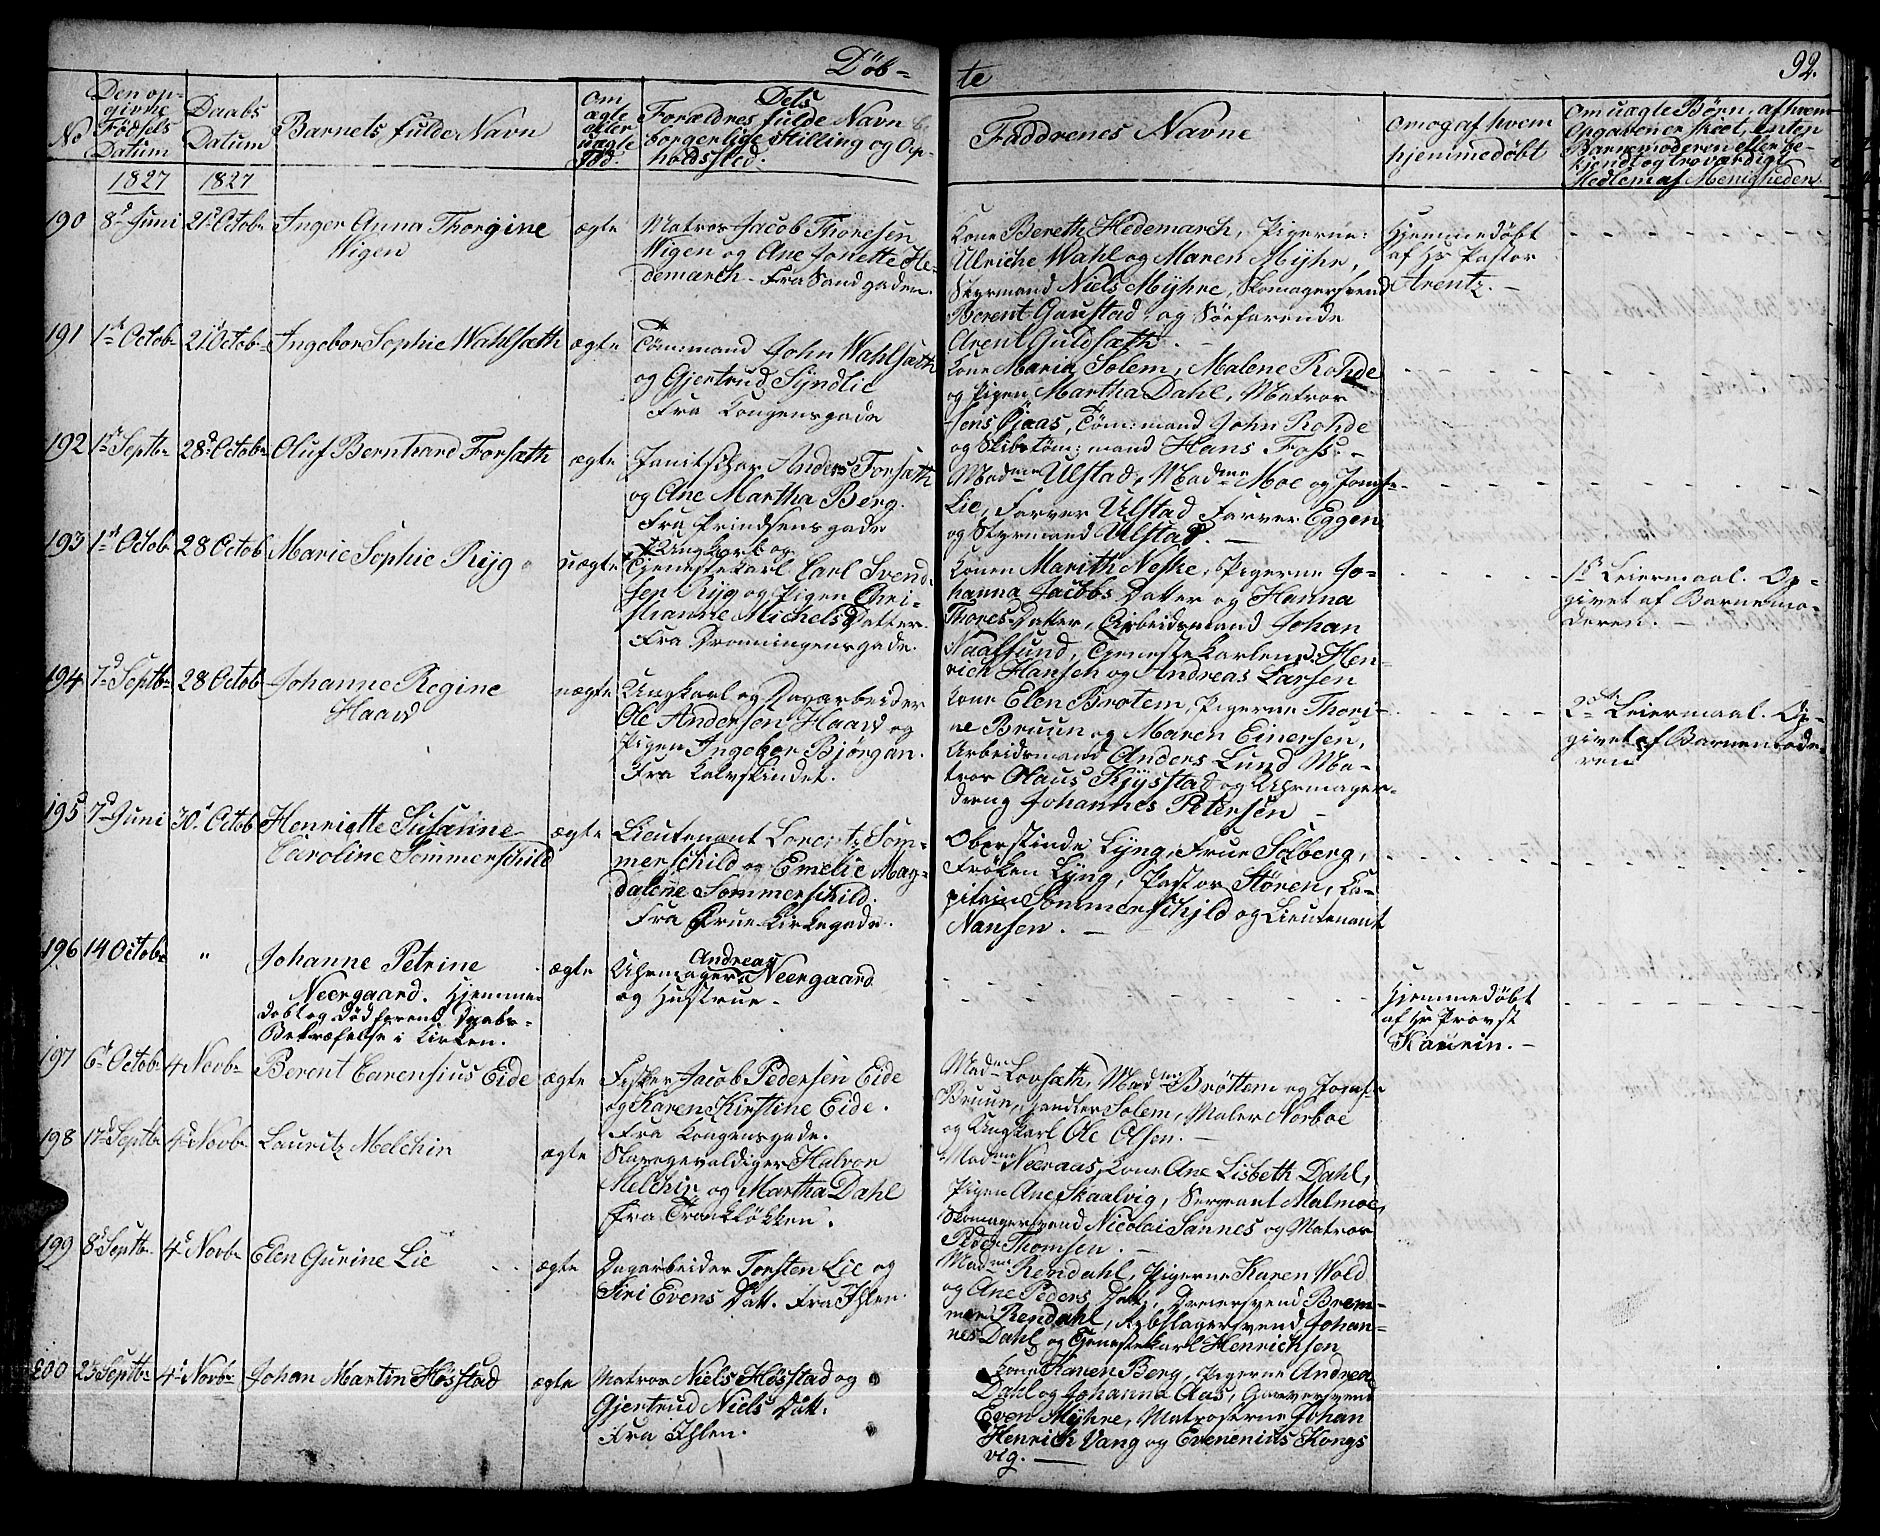 Døb-
te
92.
No
Den op-
givne
Fødsels
Datum
Daabs
Datum
Barnets fulde Navn
Om
ægte
eller
uægte
Fød.
Dets
Forældres fulde Navn
borgerlige Stilling og Op-
holdssted.
Faddrenes Navne
Om og af hvem
hjemmedøbt
Om uægte Børn, af hvem
Opgaven er skeet, enten
Barnemoderen eller be-
kjendt og troværdigt
Medlem af Menigheden
1827
1827
190
8d Juni
21d Octobr
Inger Anna Thorgine
Wigen
ægte
Matros Jacob Thoresen
Wigen og Ane Jonette He-
demarch - Fra Sandgaden.
Kone Bereth Hedemarch, Pigerne:
Ulriche Wahl og Maren Myhr,
Styrmand Niels Myhre, Skomagersvend
Berent Gaustad og Søefarende
Arent Guldsæth. -
Hjemmedøbt
af Hr Pastor
Arentz. -
191
1st Octob
21d Octob
Ingebor Sophie Wahlsæth
ægte
Tømmand John Wahlsæth
og Gjertrud Syndlie
Fra Kongensgade
Kone Maria Solem, Malene Rohde
og Pigen Martha Dahl, Matros
Jens Øjaas, Tømmand John Rohde
og Skibstøm: mand Hans Foss. -
192
1st Septbr
28d Octobr
Oluf Berntzard Forsæth
ægte
Janitschar Anders Forsæth
og Ane Martha Berg.
Fra Prindsensgade
Madme Ulstad, Madme Moe og Jomfr
Lie, Farver Ulstad Farver Eggen
og Styrmand Ulstad. -
193
1st Octob
28 Octob
Marie Sophie Ryg
uægte
Ungkarl og
Tjenestekarl Carl Svend-
sen Ryg og Pigen Chri-
stianne Michels Datter.
Fra Dronningensgade.
Konen Marith Neske, Pigerne Jo-
hanna Jacobs Datter og Hanna
Thores Datter, Arbeidsmand Johan
Naafsund, Tjenestekarlene: Hen-
rich Hansen og Andreas Larsen
1st Leiermaal. Op-
givet af Barnemo-
deren. -
194
7d Septbr
28 Octob
Johanne Regine
Haard
uægte
Ungkarl og Dagarbeider
Ole Andersen Haard og
Pigen Ingebor Bjørgan.
Fra Kalvskindet.
Kone Elen Brotem, Pigerne Thori-
ne Bruun og Maren Einersen,
Arbeidsmand Anders Lund Ma-
tros Olaus Kjystad og Uhrmager-
dreng Johannes Petersen -
2d Leiermaal. Op-
givet af Barnemode-
ren
195
7d Juni
30d Octob
Henriette Susaline
Caroline Sommerschild
ægte
Lieutenant Lorentz Som-
merschild og Emelie Mag-
dalene Sommerschild.
Fra Frue Kirkegade.
Oberstinde Lyng, Frue Solberg,
Frøken Lyng, Pastor Støren, Ka-
pitain Sommerschjld og Lieutenant
Nansen. -
196
14 Octobr
"
Johanne Petrine
Neergaard. Hjemme-
døbt og død forend Daabs-
Bekræfelse i Kirken.
ægte
Uhrmager Andreas Neergaard
og Hustrue -
Hjemmedøbt
af Hr Provst
Kaurin. -
197
6d Octob
4 Novbr
Berent Carensius Eide
ægte
Fisker Jacob Pedersen Eide
og Karen Kirstine Eide.
Fra Kongensgade.
Madme Lovsæth, Madme Brøttem og Jomfr
Bruun, Handler Solem, Maler Norboe
og Ungkarl Ole Olsen. -
198
17d Septb
4d Novbr
Lauritz Melchin
ægte
Slavegevaldiger Halvor
Melchin og Martha Dahl
Fra Trankløkken.
Madme Neeraas, Kone Ane Lisbeth Dahl,
Pigen Ane Skaalvig, Sergeant Malmoe,
Skomagersvend Nicolai Sannes og Matros
Peder Thomsen. -
199
8d Septbr
4d Novbr
Elen Gurine Lie
ægte
Dagarbeider Torsten Lie og
Siri Evens Datt. Fra Ihlen.
Madme Rendahl, Pigerne Karen Wold
og Ane Peders Datt, Dreiersvend Brem-
mer Rendahl, Rebslagersvend Johan-
nes Dahl og Tjenestekarl Henrichsen
200
23 Septbr
4d Novbr
Johan Martin Høstad
ægte
Matros Niels Høstad og
Gjertrud Niels Datt.
Fra Ihlen.
Kone Karen Berg, Pigerne Andrea
Dahl og Johanna Aas, Garversvend
Even Myhre, Matroserne Johan
Henrich Vang og Evenenius Kongs
vig. -